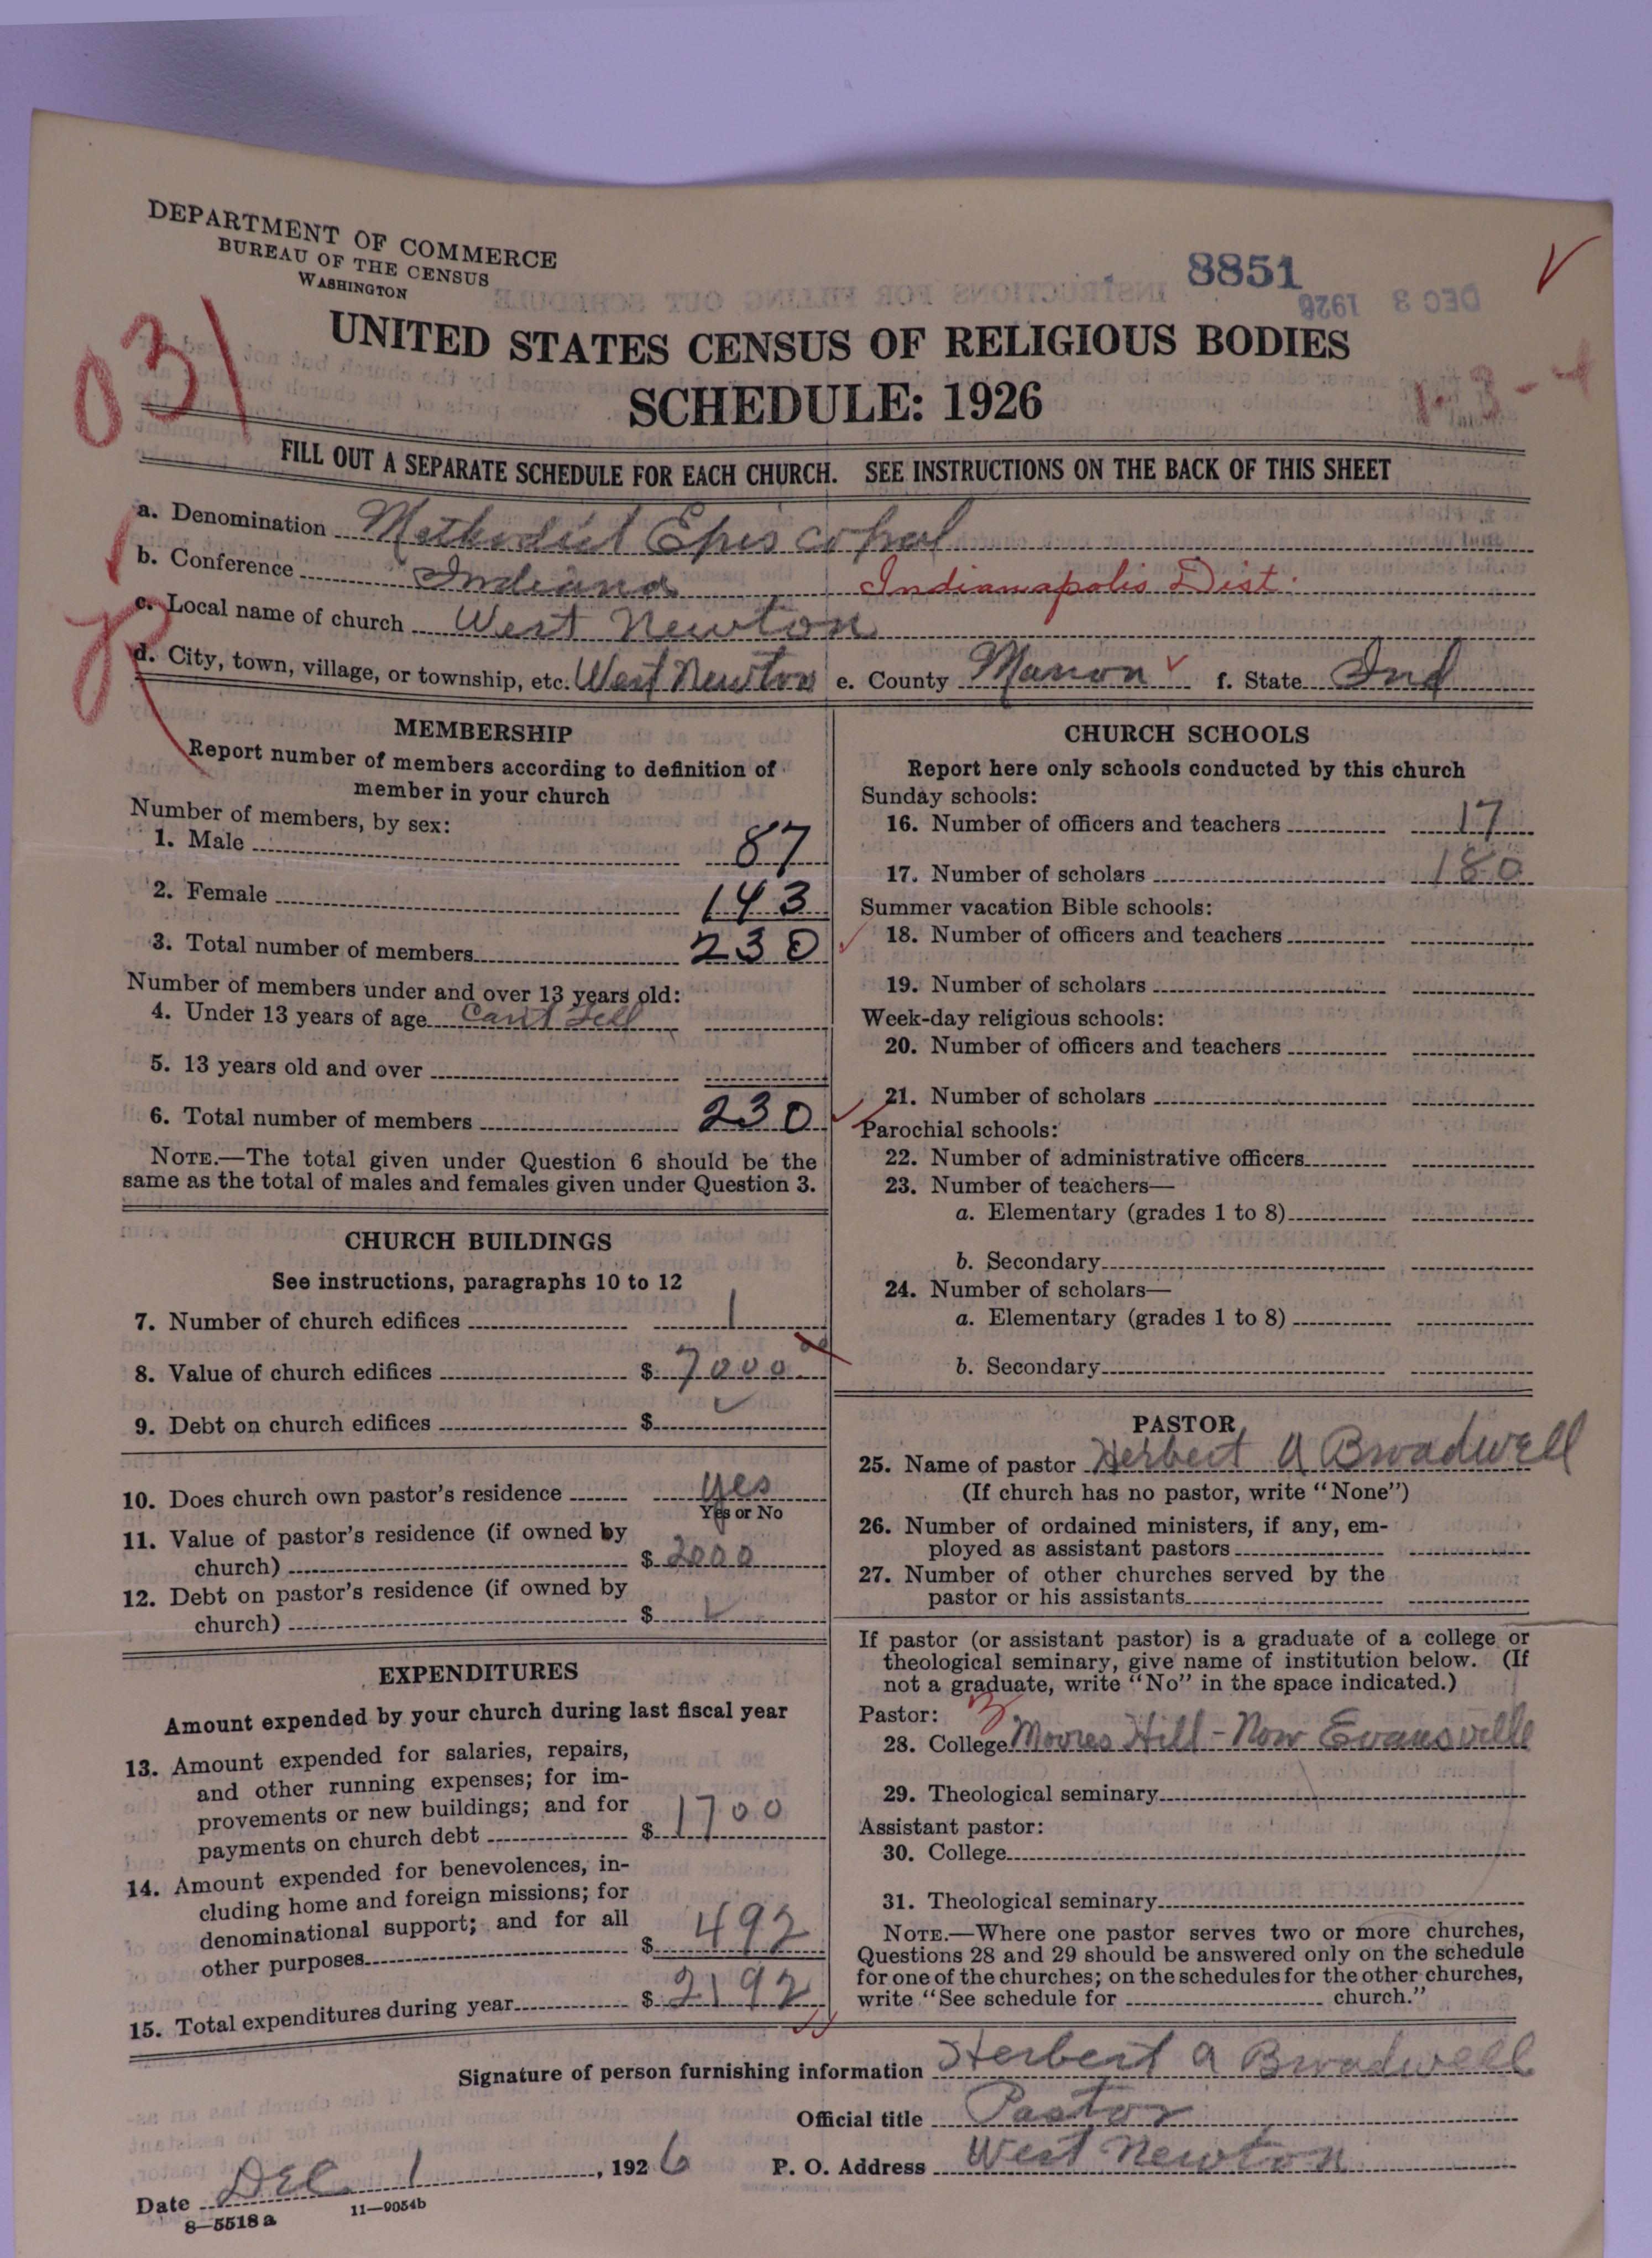 DEPARTMENT OF COMMERCE
BUREAU OF THE CENSUS
WASHINGTON
8851
DEC 3 1926
031
UNITED STATES CENSUS OF RELIGIOUS BODIES
SCHEDULE: 1926
1-3-4
FILL OUT A SEPARATE SCHEDULE FOR EACH CHURCH. SEE INSTRUCTIONS ON THE BACK OF THIS SHEET
a. Denomination Methodist Episcopal
b. Conference Indiana Indianapolis Dist.
c. Local name of church West Newton
d. City, town, village, or township, etc. West Newton e. County Marion f. State Ind
MEMBERSHIP
Report number of members according to definition of
member in your church
Number of members, by sex:
1. Male 87
2. Female 143
3. Total number of members 230
Number of members under and over 13 years old:
4. Under 13 years of age Can't Tell
5. 13 years old and over
6. Total number of members 230
NOTE.—The total given under Question 6 should be the
same as the total of males and females given under Question 3.
CHURCH BUILDINGS
See instructions, paragraphs 10 to 12
7. Number of church edifices 1
8. Value of church edifices $ 7000 00
9. Debt on church edifices $
10. Does church own pastor's residence yes
Yes or No
11. Value of pastor's residence (if owned by
church) $ 2000
12. Debt on pastor's residence (if owned by
church) $
EXPENDITURES
Amount expended by your church during last fiscal year
13. Amount expended for salaries, repairs,
and other running expenses; for im-
provements or new buildings; and for
payments on church debt $ 1700
14. Amount expended for benevolences, in-
cluding home and foreign missions; for
denominational support; and for all
other purposes $ 492
15. Total expenditures during year $ 2192
CHURCH SCHOOLS
Report here only schools conducted by this church
Sunday schools:
16. Number of officers and teachers 17
17. Number of scholars 180
Summer vacation Bible schools:
18. Number of officers and teachers
19. Number of scholars
Week-day religious schools:
20. Number of officers and teachers
21. Number of scholars
Parochial schools:
22. Number of administrative officers
23. Number of teachers—
a. Elementary (grades 1 to 8)
b. Secondary
24. Number of scholars—
a. Elementary (grades 1 to 8)
b. Secondary
PASTOR
25. Name of pastor Herbert A Broadwell
(If church has no pastor, write "None")
26. Number of ordained ministers, if any, em-
ployed as assistant pastors
27. Number of other churches served by the
pastor or his assistants
If pastor (or assistant pastor) is a graduate of a college or
theological seminary, give name of institution below. (If
not a graduate, write "No" in the space indicated.)
Pastor:
28. College Moores Hill - Now Evansville
29. Theological seminary
Assistant pastor:
30. College
31. Theological seminary
NOTE.—Where one pastor serves two or more churches,
Questions 28 and 29 should be answered only on the schedule
for one of the churches; on the schedules for the other churches,
write "See schedule for church."
Signature of person furnishing information Herbert A Broadwell
Official title Pastor
Date Dec 1, 1926 P. O. Address West Newton
8—5518 a 11—9054b